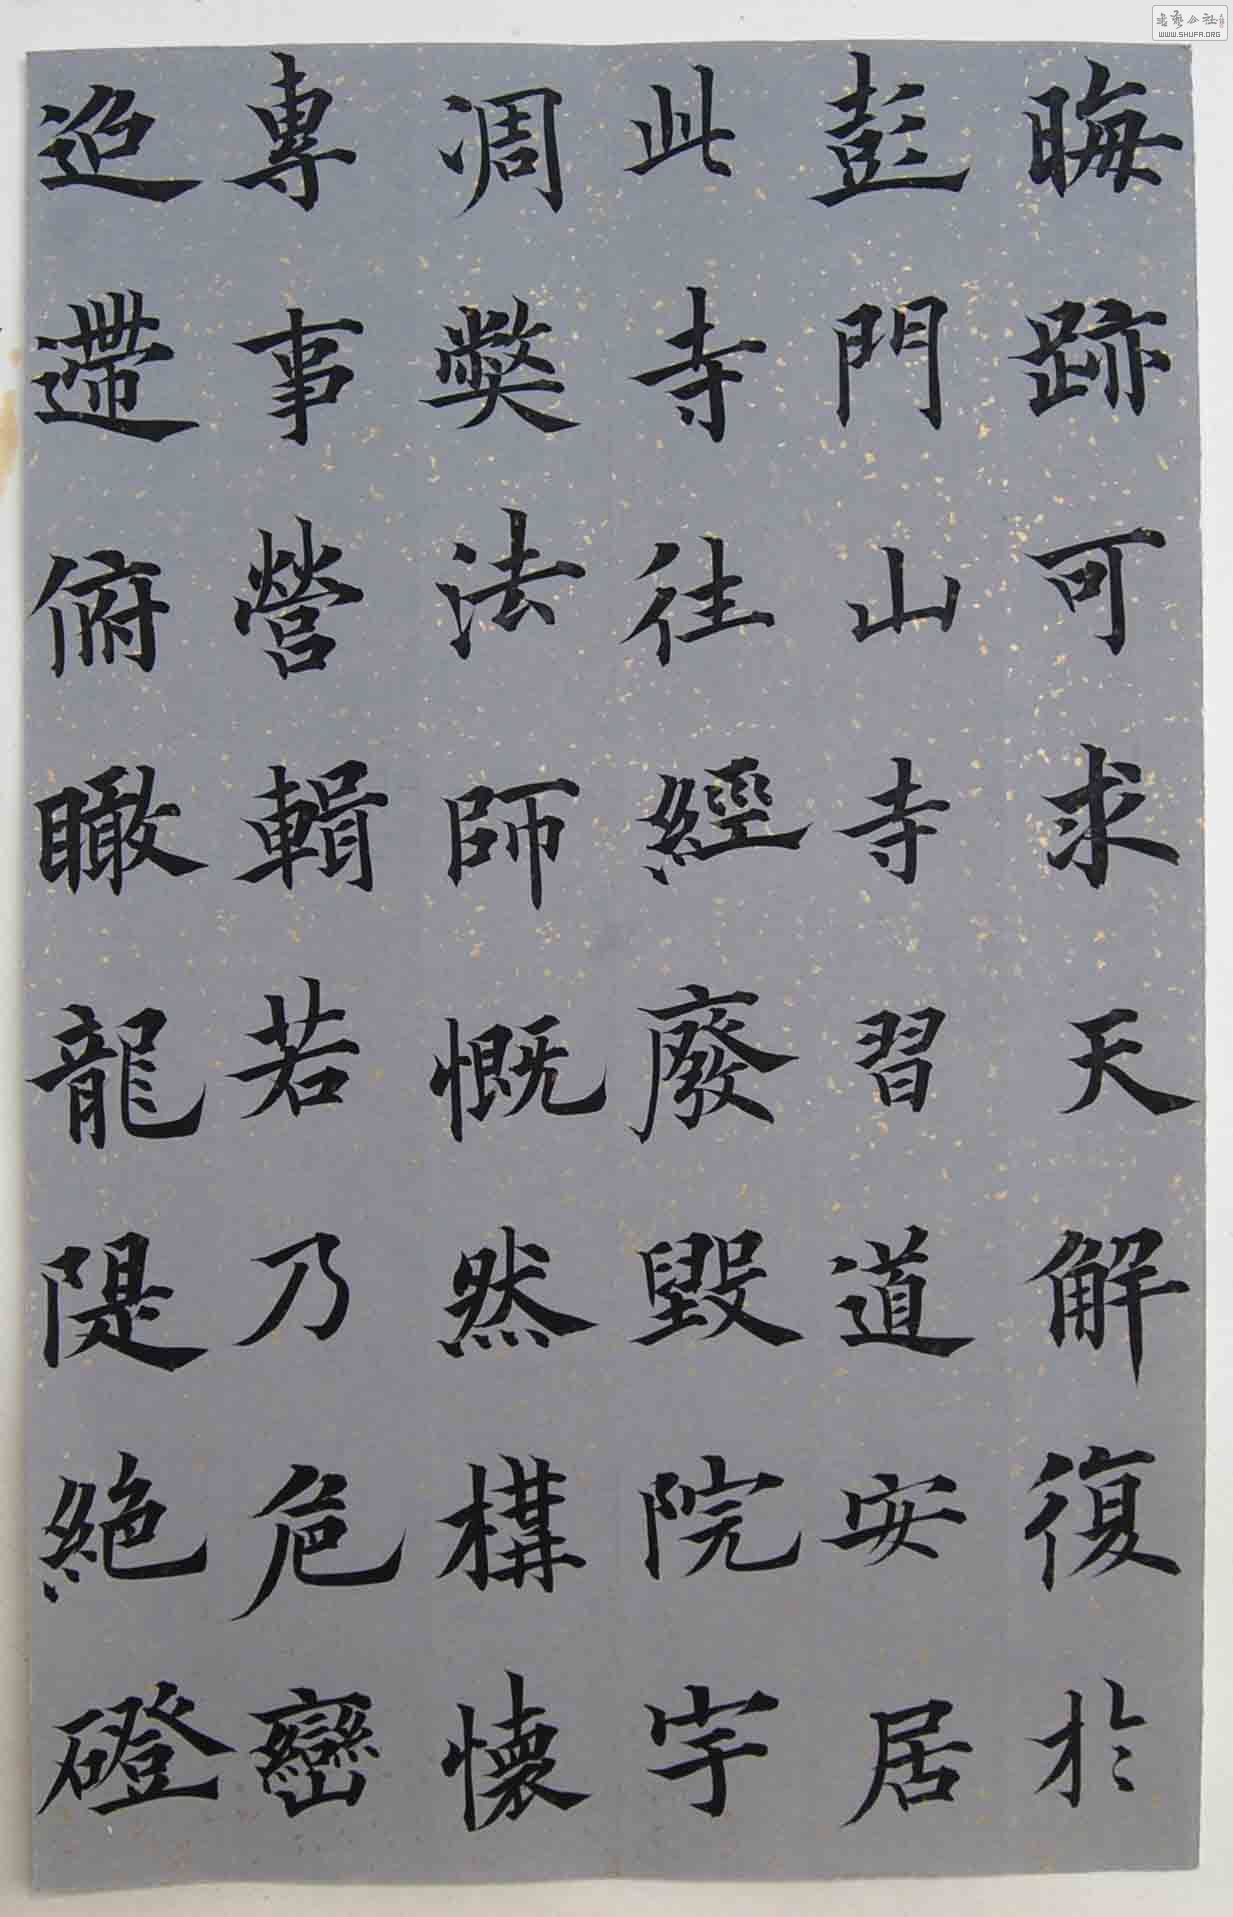 晦跡可求天解復於
彭門山寺習道安居
此寺往經廢毀院宇
凋弊法師慨然構懷
專事營輯若乃危巒
迢遰俯瞰龍隄絕磴
WWW.SHUFA.ORG